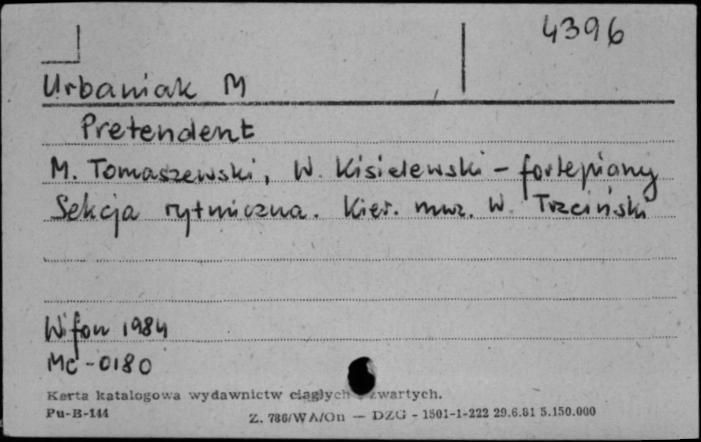 4396
Urbaniak M
Pretendent
M. Tomaszewski, W. Kisielewski - fortepiany
Sekcja rytmiczna. Kier. muz. W. Trzciński
Wifon 1984
MC-0180
Karta katalogowa wydawnictw ciągłych zwartych.
Pu-B-144 Z. 786/WA/On — DZG - 1501-1-222 29.6.81 5.150.000